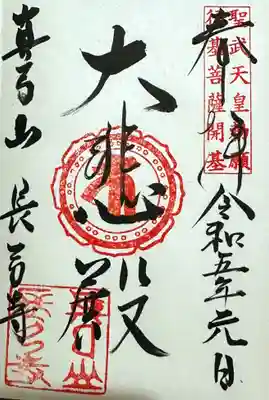 奉拝
令和五年元日
聖武天皇勅願
行基菩薩開基
大悲殿
真弓山
長弓寺